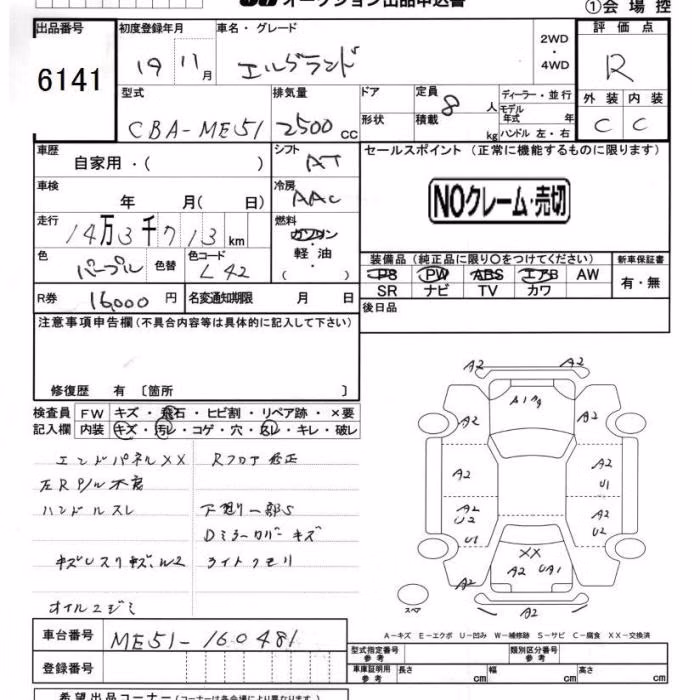 オークション出品申込書
①会場控
出品番号
6141
初度登録年月
19 11月
車名・グレード
エルグランド
2WD
・
4WD
評価点
R
型式
CBA-ME51
排気量
2500cc
ドア
形状
定員
8人
積載
kg
ディーラー・並行
モデル
年式 年
ハンドル 左・右
外装 内装
C C
車歴
自家用・( )
シフト
AT
セールスポイント (正常に機能するものに限ります)
NOクレーム・売切
車検
年 月( 日)
冷房
AAC
走行
14万3千713km
燃料
ガソリン
・
軽油
( )
色
パープル
色替
色コード
L42
装備品(純正品に限り〇をつけてください)
新車保証書
PS PW ABS エアB AW
SR ナビ TV カワ
有・無
R券 16,000円
名変通知期限 月 日
後日品
注意事項申告欄(不具合内容等は具体的に記入して下さい)
修復歴 有〔箇所 〕
検査員
記入欄
FW キズ・飛石・ヒビ割・リペア跡・×要
内装 キズ・汚レ・コゲ・穴・スレ・キレ・破レ
エンドパネルXX Rフロア修正
左R P/L不良
ハンドルスレ 下廻り一部S
Dミラーカバーキズ
キズUスリキズ、W2 ライトクモリ
オイルニジミ
A2
A2
A1 A2
A2
A2
A2
U1
A2
U2
A2
U2
U1
XX
A2
UA1
A2
A2
A2
スペア
A-キズ E-エクボ U-凹み W-補修跡 S-サビ C-腐食 XX-交換済
車台番号
ME51-160481
登録番号
型式指定番号
参考
類別区分番号
参考
車庫証明用
参考
長さ cm
幅 cm
高さ cm
希望出品コーナー(コーナーは各会場により異なります。)